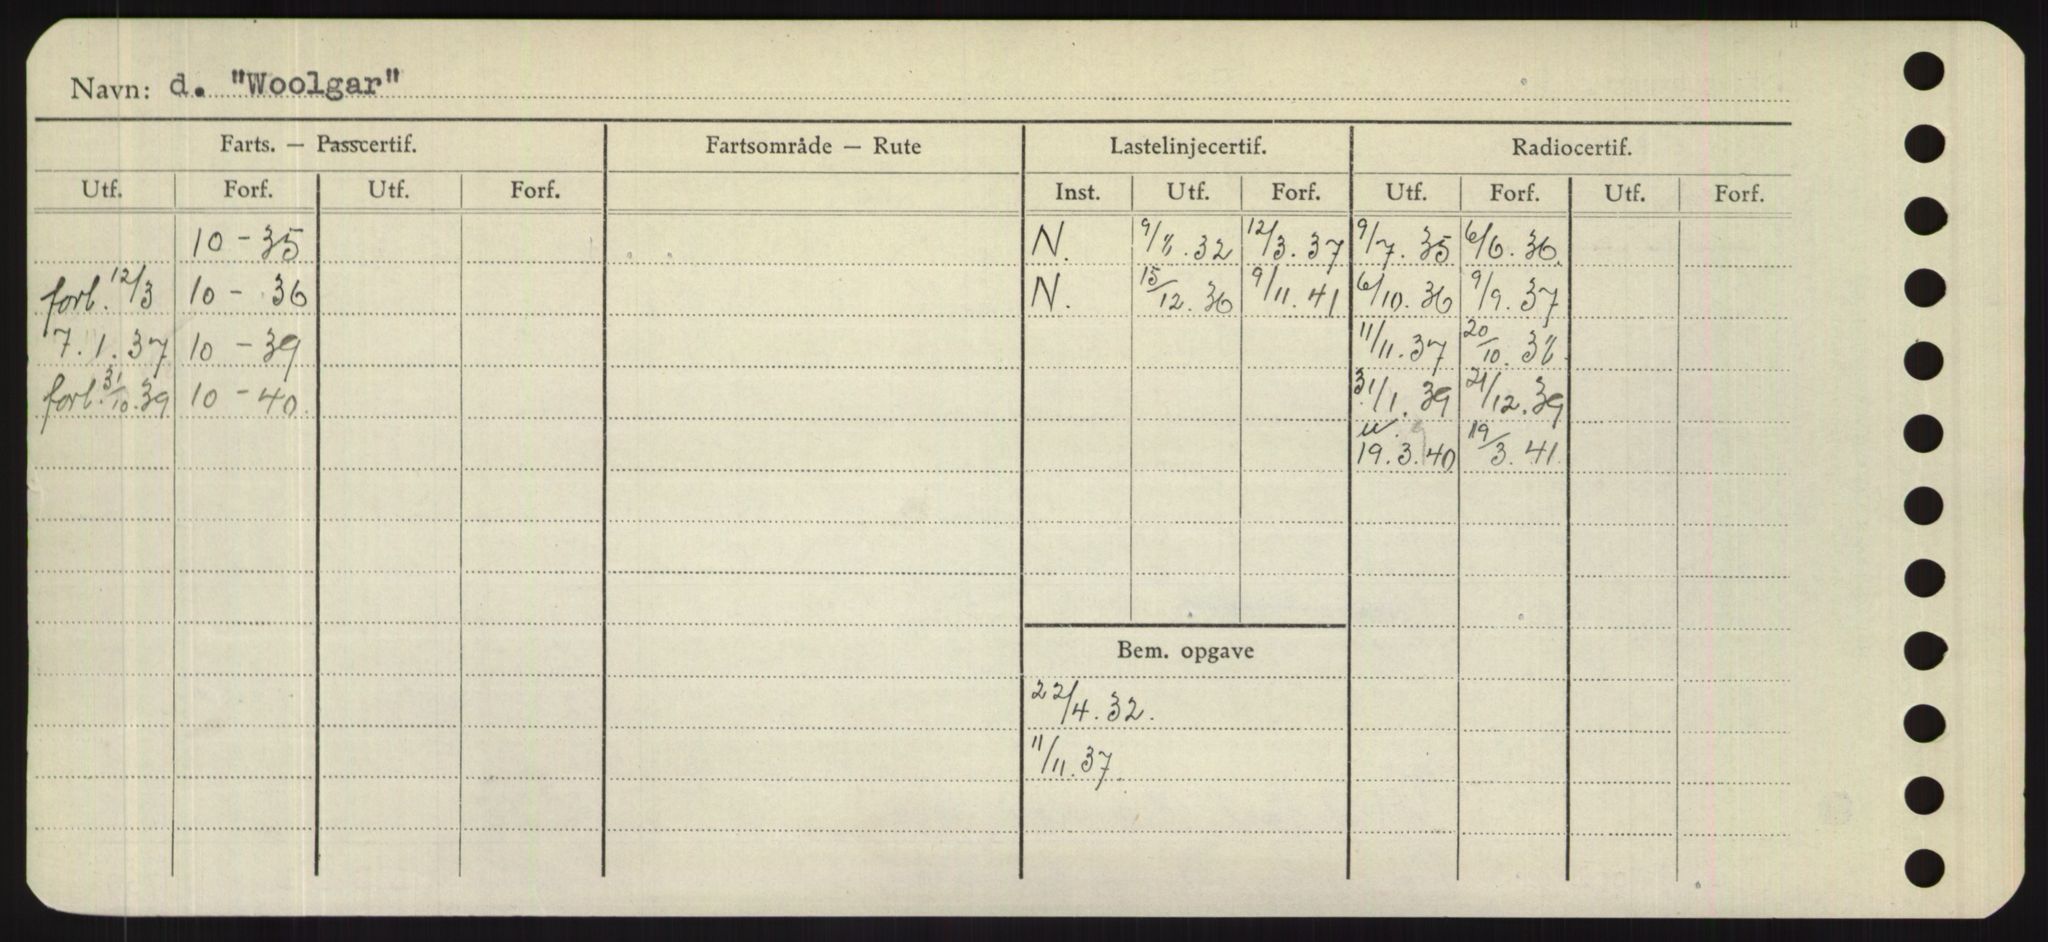 Navn: d. "Woolgar"
Farts. — Passcertif. Fartsområde — Rute Lastelinjecertif. Radiocertif.
Utf. Forf. Utf. Forf. Inst. Utf. Forf. Utf. Forf. Utf. Forf.
10 - 35 N. 9/8. 32 12/3. 37 9/7. 35 6/6. 36.
forl. 12/3 10 - 36 N. 15/12. 36 9/11. 41 6/10. 36 9/9. 37
7. 1. 37 10 - 39 11/11. 37 20/10. 38.
forl. 31/10. 39 10 - 40. 31/1. 39 21/12. 39
19. 3. 40 19/3. 41
Bem. opgave
22/4. 32.
11/11. 37.